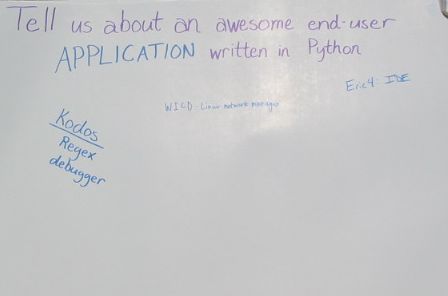 Tell us about an awesome end-user
APPLICATION written in Python
Eric4: IDE
WICD - Linux network manager
Kodos
Regex
debugger